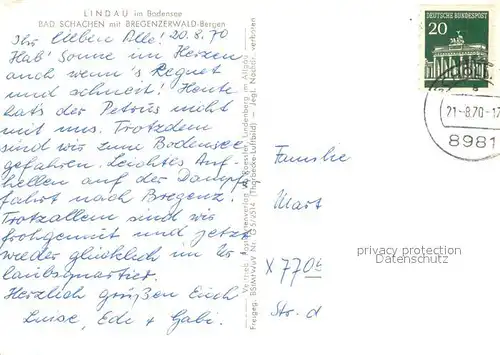 LINDAU im Bodensee
BAD SCHACHEN mit BREGENZERWALD-Bergen
Ihr lieben Alle! 20.8.70
Hab' Sonne im Herzen
auch wenn's Regnet
und schneit! Heute
hats der Petrus nicht
mit uns. Trotzdem
sind wir zum Bodensee
gefahren. Leichtes Auf-
hellen auf der Dampfer
fahrt nach Bregenz.
Trotzallem sind wir
frohgemut und jetzt
wieder glücklich im Ur-
laubsquartier.
Herzlich grüßen Euch
Luise, Ede + Gabi.
Freigeg. BStMfWuV Nr. (Thorbecke-Luftbild) — Jegl. Nachdr. verboten
DEUTSCHE BUNDESPOST
20
21.-8.70-17
8981
Familie
X 770
Str. d
privacy protection
Datenschutz